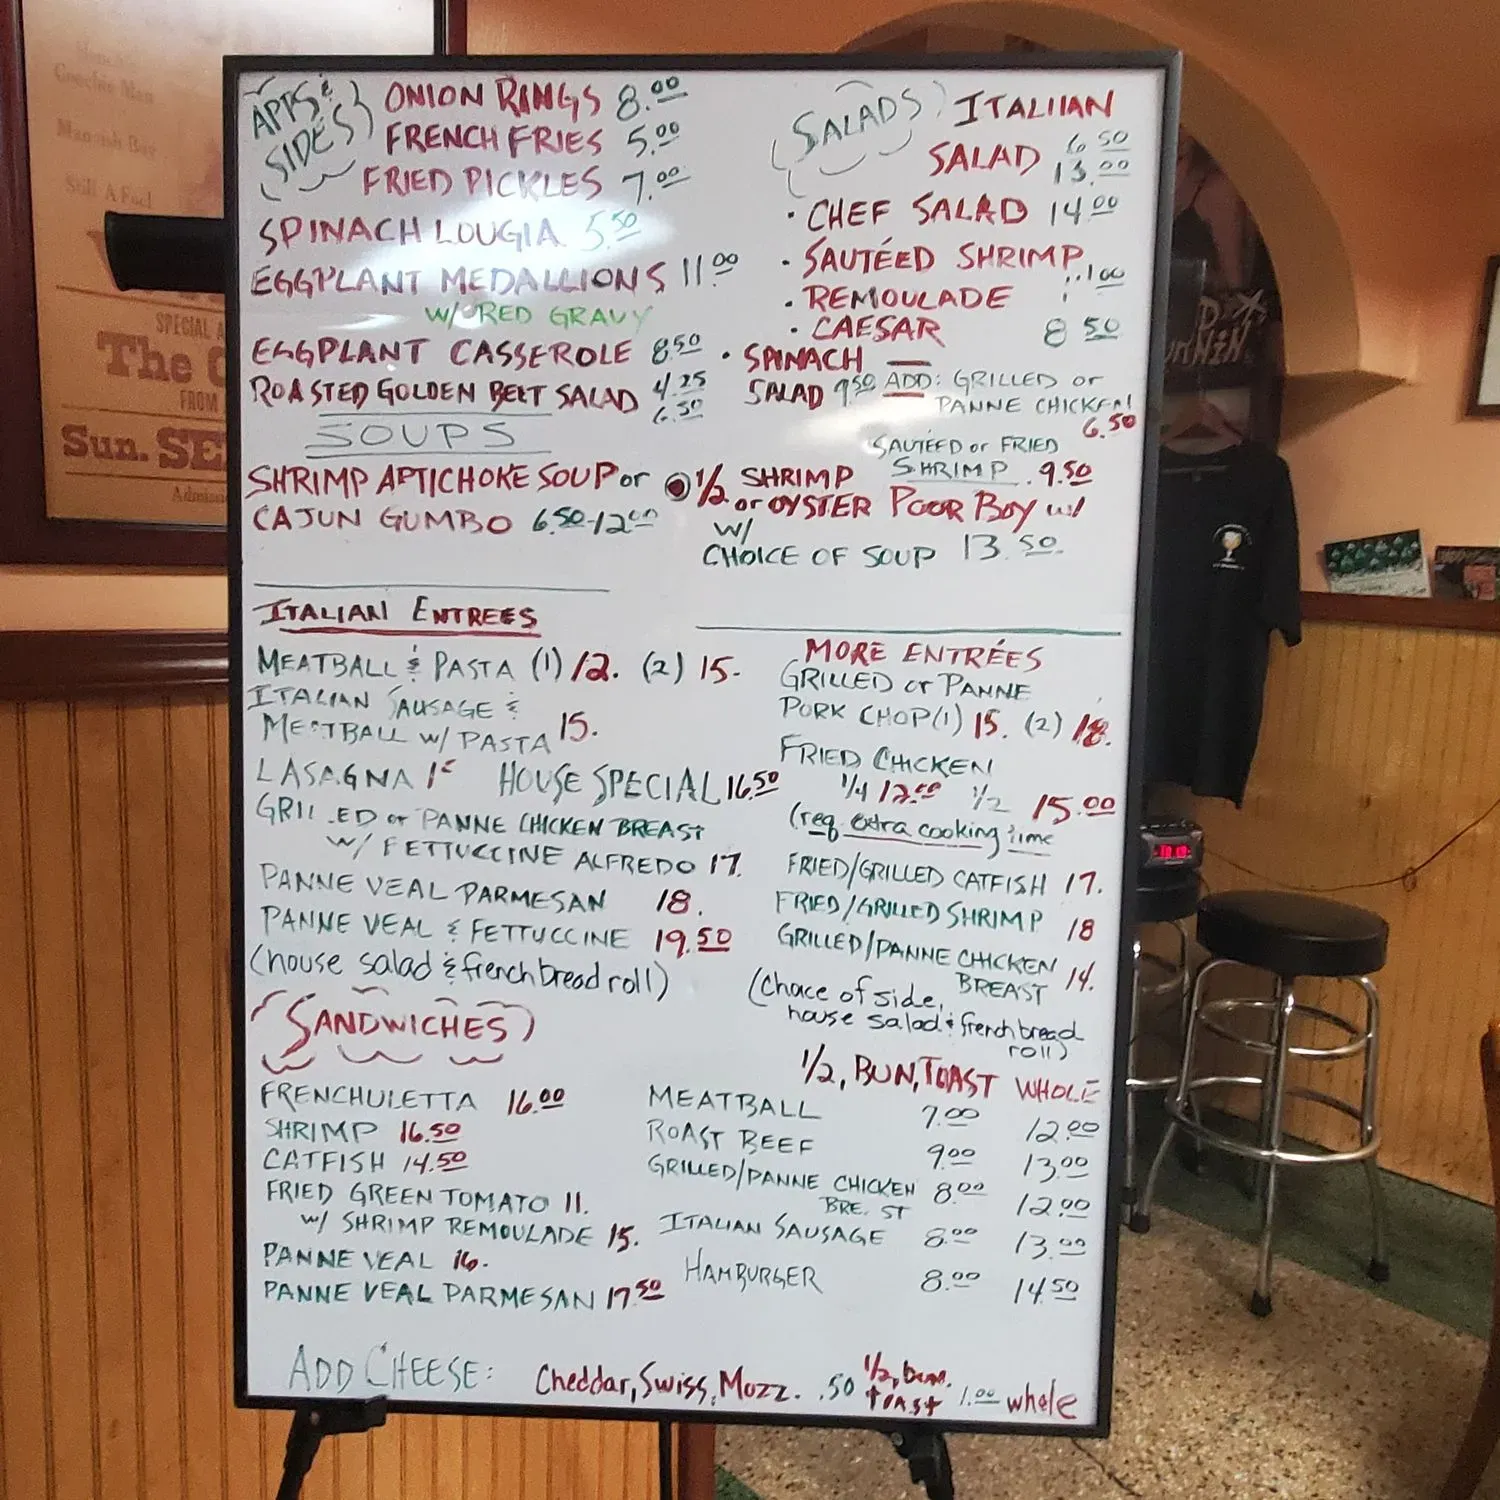 APPS & SIDES
ONION RINGS 8.00
FRENCH FRIES 5.00
FRIED PICKLES 7.00
SPINACH LOUGIA 5.50
EGGPLANT MEDALLIONS 11.00
W/ RED GRAVY
EGGPLANT CASSEROLE 8.50
ROASTED GOLDEN BEET SALAD 4.25
6.50
SOUPS
SHRIMP ARTICHOKE SOUP or
CAJUN GUMBO 6.50-12.00
SALADS
ITALIIAN
SALAD 6.50
13.00
· CHEF SALAD 14.00
· SAUTÉED SHRIMP
· REMOULADE
· CAESAR 8.50
· SPINACH
SALAD 9.50
ADD: GRILLED or
PANNE CHICKEN
6.50
SAUTÉED or FRIED
SHRIMP 9.50
1/2 SHRIMP
or OYSTER POOR BOY w/
w/
CHOICE OF SOUP 13.50
ITALIAN ENTREES
MEATBALL & PASTA (1) 12. (2) 15.
ITALIAN SAUSAGE &
MEATBALL w/ PASTA 15.
LASAGNA HOUSE SPECIAL 16.50
GRILLED or PANNE CHICKEN BREAST
w/ FETTUCCINE ALFREDO 17.
PANNE VEAL PARMESAN 18.
PANNE VEAL & FETTUCCINE 19.50
(house salad & french bread roll)
MORE ENTRÉES
GRILLED or PANNE
PORK CHOP (1) 15. (2) 18.
FRIED CHICKEN
1/4 12.00 1/2 15.00
(req. extra cooking time
FRIED/GRILLED CATFISH 17.
FRIED/GRILLED SHRIMP 18
GRILLED/PANNE CHICKEN
BREAST 14.
(choice of side,
house salad & french bread
roll)
SANDWICHES
FRENCHULETTA 16.00
SHRIMP 16.50
CATFISH 14.50
FRIED GREEN TOMATO 11.
w/ SHRIMP REMOULADE 15.
PANNE VEAL 16.
PANNE VEAL PARMESAN 17.50
1/2, BUN, TOAST WHOLE
MEATBALL 7.00 12.00
ROAST BEEF 9.00 13.00
GRILLED/PANNE CHICKEN 8.00 12.00
BREAST
ITALIAN SAUSAGE 8.00 13.00
HAMBURGER 8.00 14.50
ADD CHEESE: Cheddar, Swiss, Mozz. .50 1/2, bun,
toast 1.00 whole
SPECIAL
The
FROM
Sun.